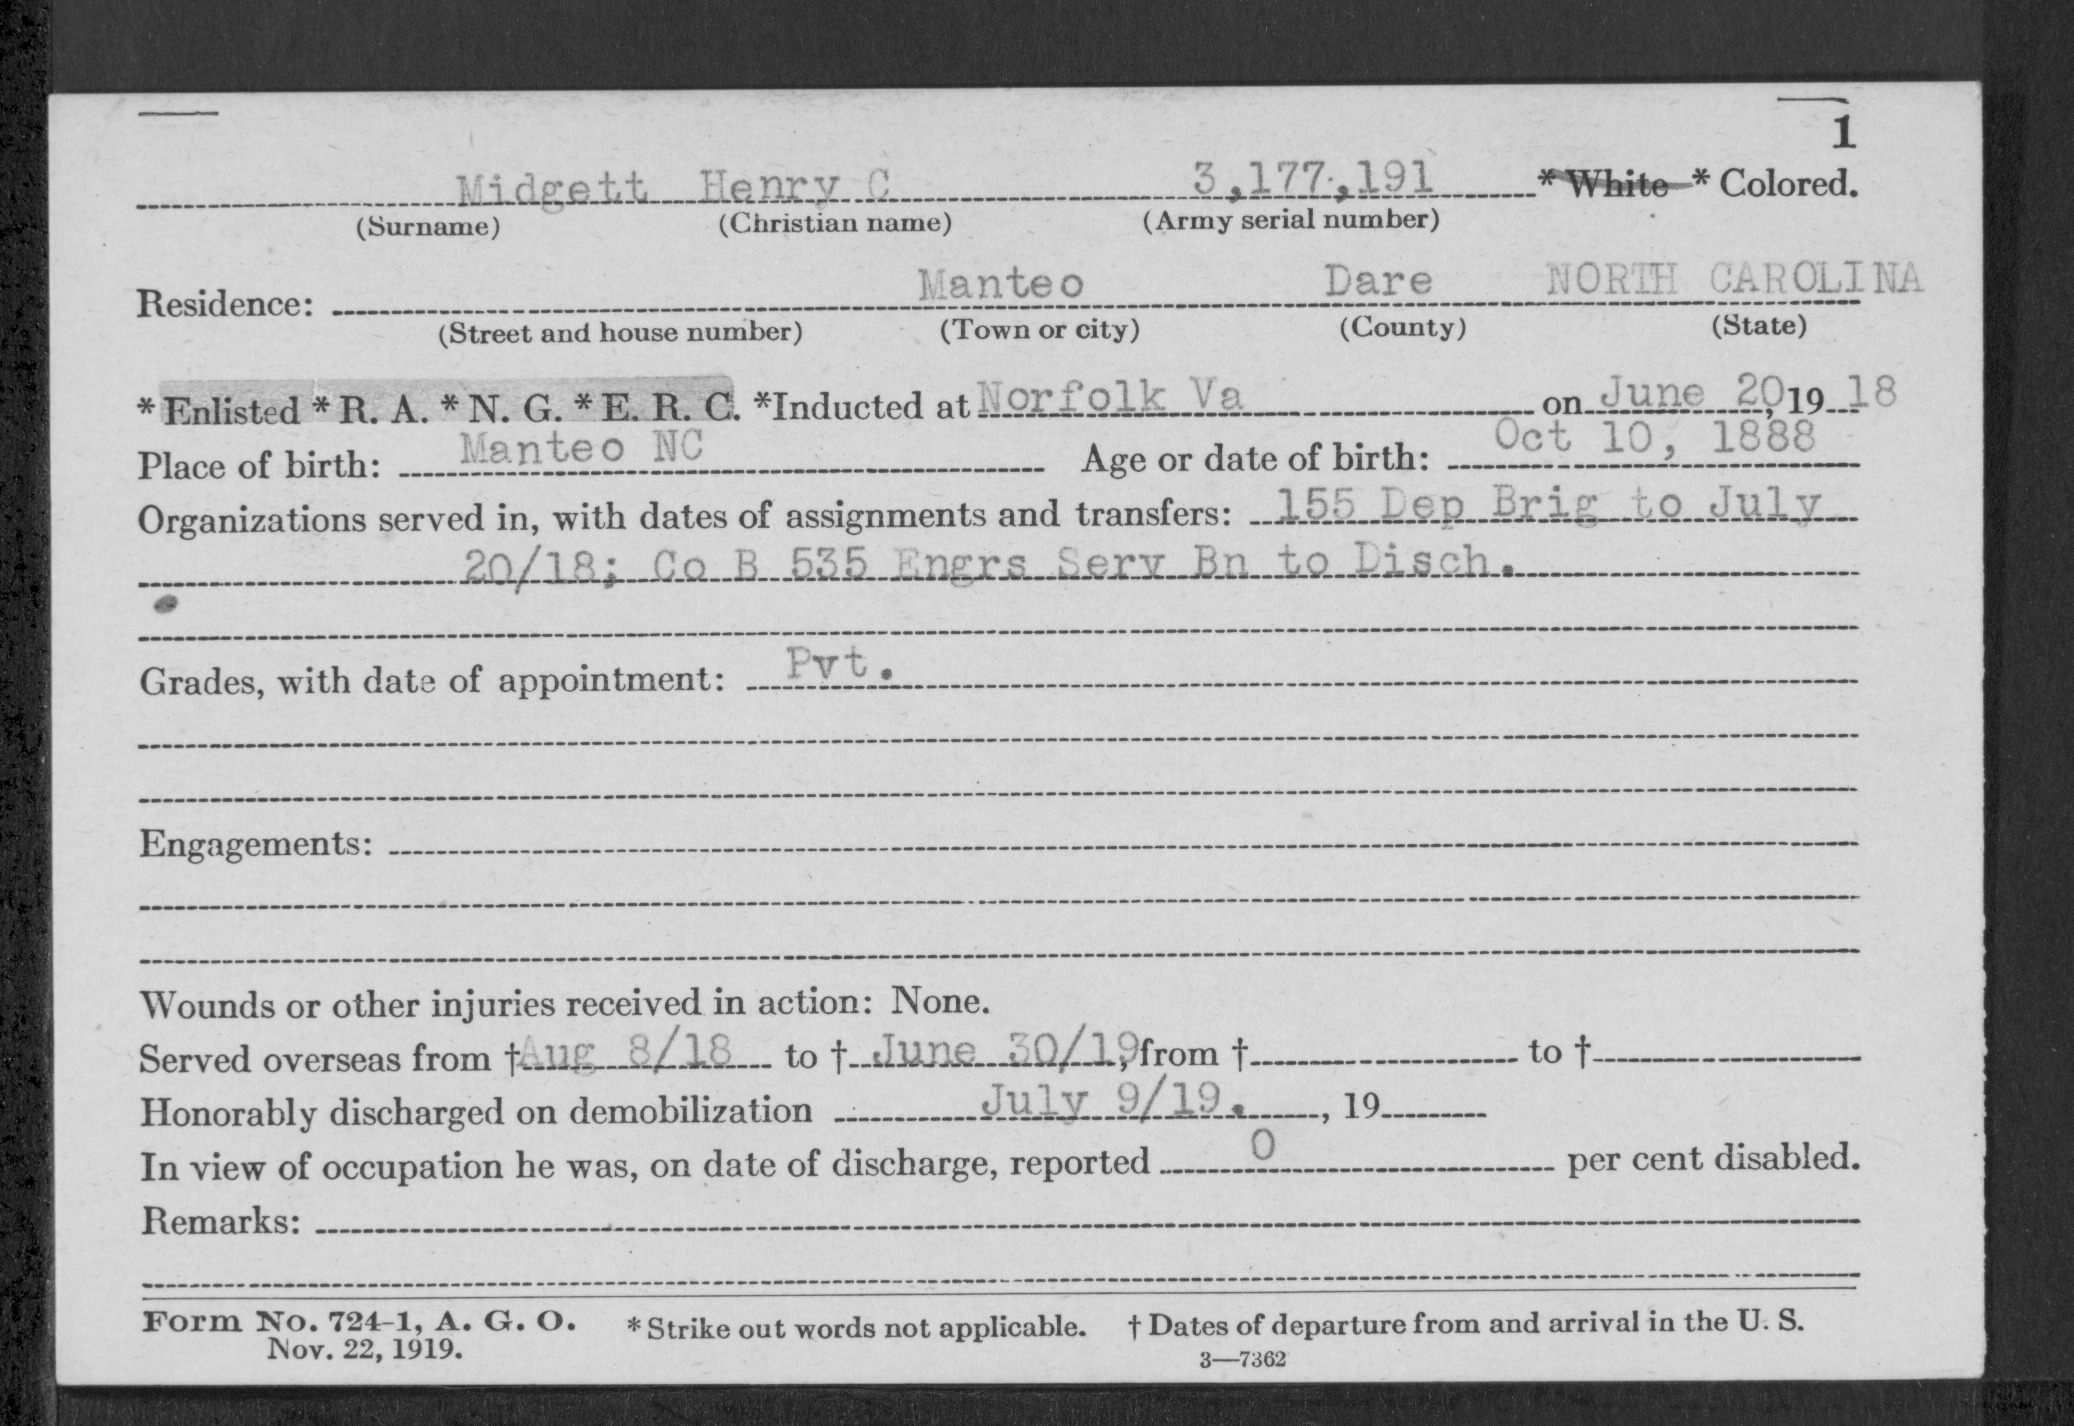 1
Midgett Henry C 3,177,191 * White * Colored.
(Surname) (Christian name) (Army serial number)
Residence: Manteo Dare NORTH CAROLINA
(Street and house number) (Town or city) (County) (State)
* Enlisted * R. A. * N. G. * E. R. C. *Inducted at Norfolk Va on June 20, 19 18
Place of birth: Manteo NC Age or date of birth: Oct 10, 1888
Organizations served in, with dates of assignments and transfers: 155 Dep Brig to July
20/18; Co B 535 Engrs Serv Bn to Disch.
Grades, with date of appointment: Pvt.
Engagements:
Wounds or other injuries received in action: None.
Served overseas from † Aug 8/18 to † June 30/19, from † to †
Honorably discharged on demobilization July 9/19. , 19
In view of occupation he was, on date of discharge, reported 0 per cent disabled.
Remarks:
Form No. 724-1, A. G. O. * Strike out words not applicable. † Dates of departure from and arrival in the U. S.
Nov. 22, 1919. 3—7362